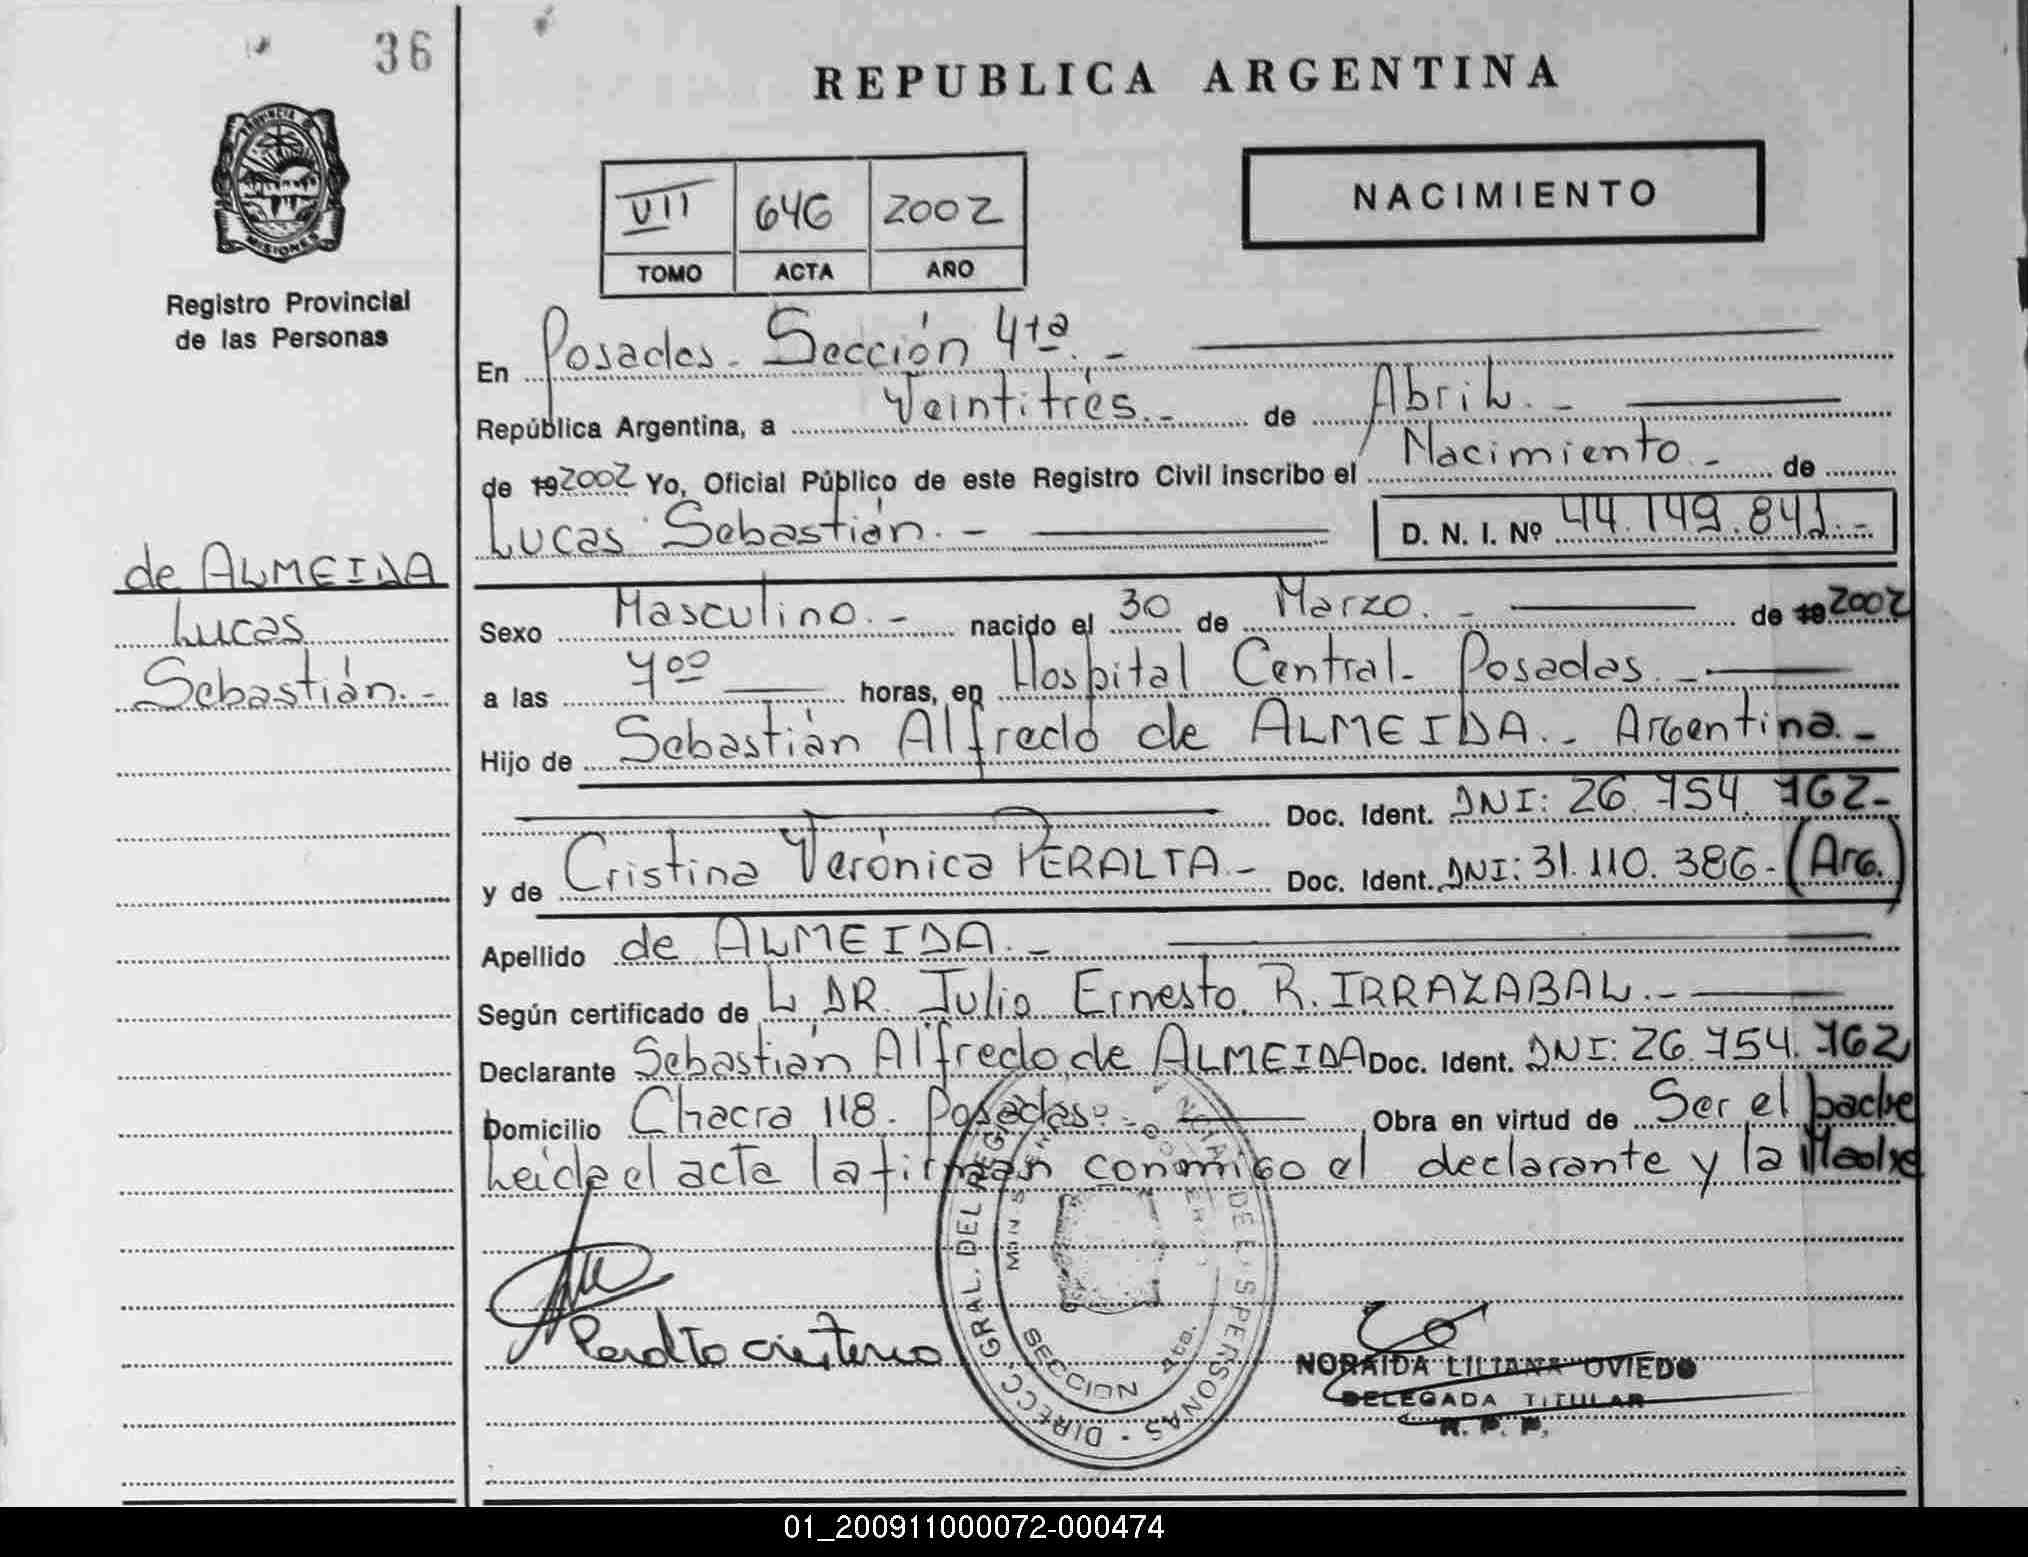 36
REPUBLICA ARGENTINA
PROVINCIA DE
MISIONES
Registro Provincial
de las Personas
VII 646 2002
TOMO ACTA AÑO
NACIMIENTO
En Posadas - Sección 4ta. -
República Argentina, a Veintitrés. - de Abril. -
de 19 2002 Yo, Oficial Público de este Registro Civil inscribo el Nacimiento - de
Lucas Sebastián. - D. N. I. Nº 44.149.841. -
de ALMEIDA
Lucas
Sebastián. -
Sexo Masculino. - nacido el 30 de Marzo. - de 19 2002
a las 7⁰⁰ horas, en Hospital Central - Posadas. -
Hijo de Sebastián Alfredo de ALMEIDA. - Argentina. -
Doc. Ident. DNI: 26.754.762 -
y de Cristina Verónica PERALTA - Doc. Ident. DNI: 31.110.386 - (Arg.)
Apellido de ALMEIDA. -
Según certificado de L DR. Julio Ernesto R. IRRAZABAL. -
Declarante Sebastián Alfredo de ALMEIDA Doc. Ident. DNI: 26.754.762
Domicilio Chacra 118. Posadas. - Obra en virtud de Ser el padre
Leida el acta la firman conmigo el declarante y la Madre
DIRECC. GRAL. DEL REG. DE PERSONAS
SECCION 4ta.
Peralta
NORAIDA LILIANA OVIEDO
DELEGADA TITULAR
R. P. P.
01_200911000072-000474